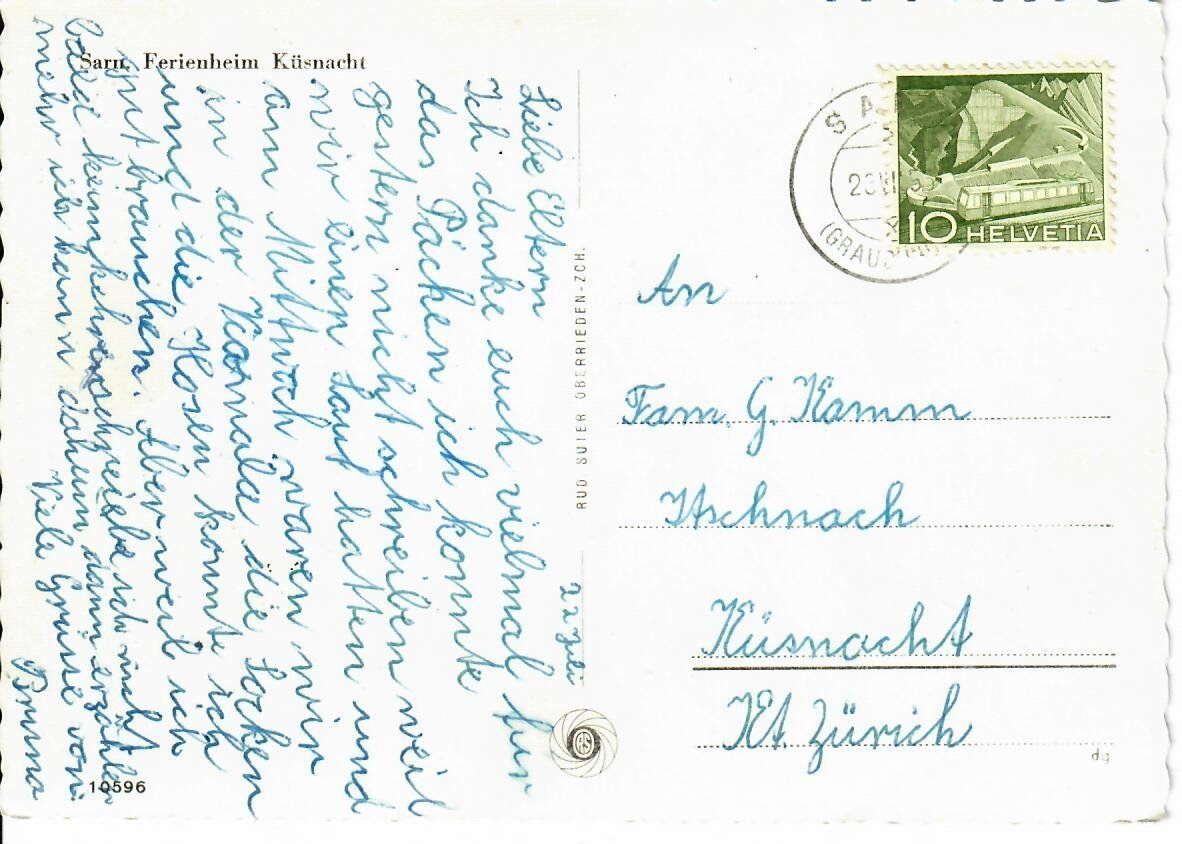 Sarn, Ferienheim Küsnacht
22 Juli
Liebe Eltern
Ich danke euch vielmal für
das Päcken ich konnte
gestern nicht schreiben weil
wir einen Lauf hatten und
am Mittwoch waren wir
in der Kanala die Socken
und die Hosen konnte ich
gut brauchen. Aber weil ich
bald heimkehre schreibe ich nicht
mehr ich kann daheim dann erzählen
Viele Grüsse von
Bruna
10596
RUD SUTER OBERRIEDEN-ZCH.
SA
(GRAUB
10 HELVETIA
An
Fam. G. Kamm
Itschnach
Küsnacht
Kt. Zürich
dg